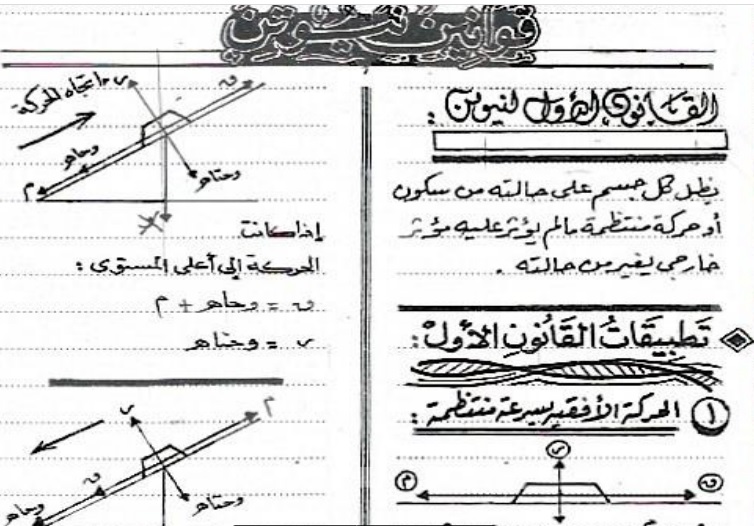 قوانين نيوتن
القانون الأول لنيوتن :
يظل كل جسم على حالته من سكون
أو حركة منتظمة مالم يؤثر عليه مؤثر
خارجى يغير من حالته .
تطبيقات القانون الأول :
١ الحركة الأفقية بسرعة منتظمة :
م
ر
ق
اتجاه الحركة
ر
ق
وحاهـ
م
وحتاهـ
إذا كانت
الحركة إلى أعلى المستوى :
ق = وحاهـ + م
ر = وحتاهـ
ر
م
ق
وحاهـ
وحتاهـ